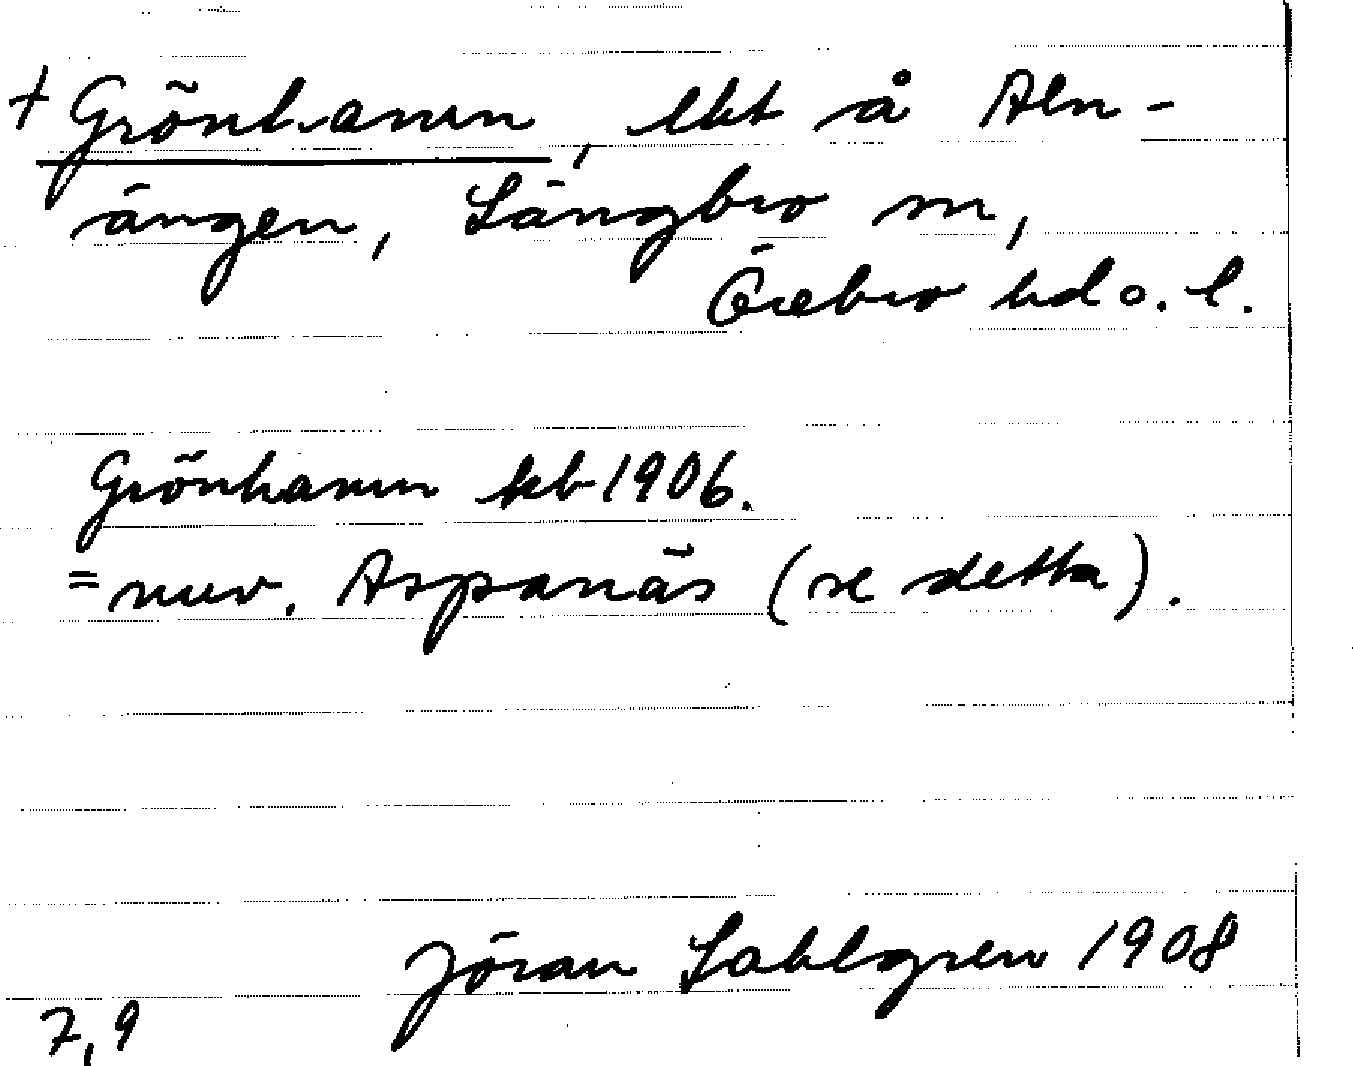 + Grönhamn, lht å Aln-
ängen, Längbro sn,
Örebro hd o. l.
Grönhamn kb 1906.
= nuv. Aspanäs (se detta).
Jöran Sahlgren 1908
7,9